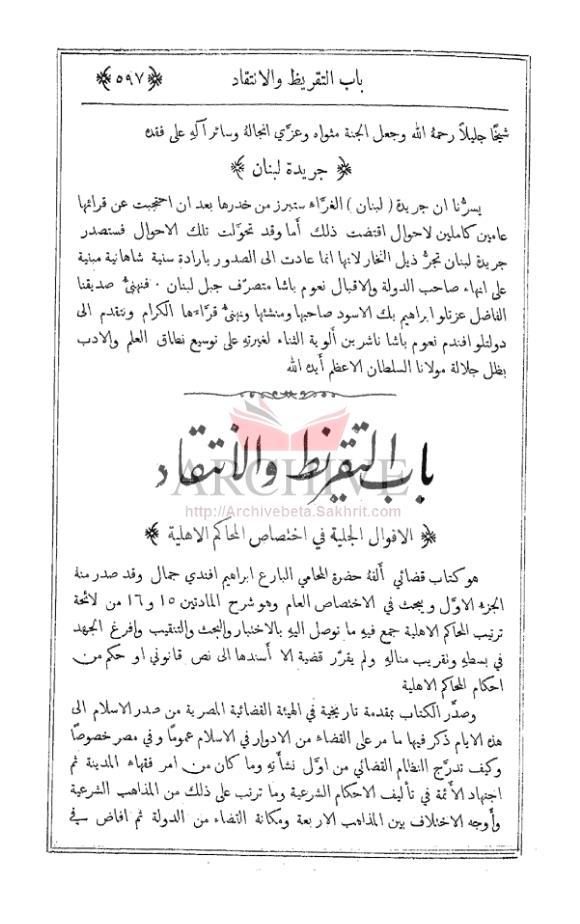 باب التقريظ والانتقاد ﴿٥٩٧﴾
شيخًا جليلاً رحمهُ الله وجعل الجنة مثواه وعزَّى انجالهُ وسائر آلهِ على فقده
﴿ جريدة لبنان ﴾
يسرُّنا ان جريدة ( لبنان ) الغرَّاء ستبرز من خدرها بعد ان احتجبت عن قرائها
عامين كاملين لاحوال اقتضت ذلك أما وقد تحوَّلت تلك الاحوال فستصدر
جريدة لبنان تجرُّ ذيل الفخار لانها انما عادت الى الصدور بارادة سنية شاهانية مبنية
على انهاء صاحب الدولة والاقبال نعوم باشا متصرّف جبل لبنان . فنهنئُ صديقنا
الفاضل عزتلو ابراهيم بك الاسود صاحبها ومنشئها ونهنئُ قرَّاءها الكرام ونتقدم الى
دولتلو افندم نعوم باشا ناشرين ألوية الثناء لغيرتهِ على توسيع نطاق العلم والادب
بظل جلالة مولانا السلطان الاعظم أيده الله
باب التقريظ والانتقاد
ARCHIVE
http://Archivebeta.Sakhrit.com
﴿ الاقوال الجلية في اختصاص المحاكم الاهلية ﴾
هو كتاب قضائي ألفهُ حضرة المحامي البارع ابراهيم افندي جمال وقد صدر منهُ
الجزء الاوَّل ويبحث في الاختصاص العام وهو شرح المادتين ١٥ و١٦ من لائحة
ترتيب المحاكم الاهلية جمع فيهِ ما توصل اليهِ بالاختبار والبحث والتنقيب وافرغ الجهد
في بسطهِ وتقريب منالهِ ولم يقرّر قضية الا أسندها الى نص قانوني او حكم من
احكام المحاكم الاهلية
وصدَّر الكتاب بمقدمة تاريخية في الهيئة القضائية المصرية من صدر الاسلام الى
هذه الايام ذكر فيها ما مر على القضاء من الادوار في الاسلام عمومًا وفي مصر خصوصًا
وكيف تدرَّج النظام القضائي من اوَّل نشأتهِ وما كان من امر فقهاء المدينة ثم
اجتهاد الأئمة في تأليف الاحكام الشرعية وما ترتب على ذلك من المذاهب الشرعية
وأوجه الاختلاف بين المذاهب الاربعة ومكانة القضاء من الدولة ثم افاض في